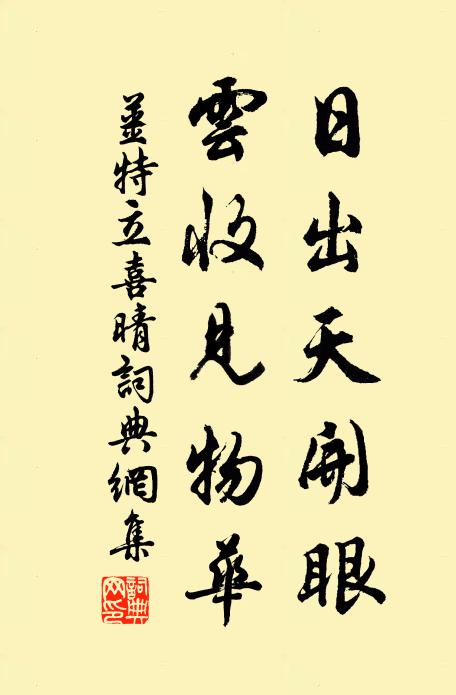 日出天開眼
雲收見物華
姜特立喜晴詞典網集
詞典網印